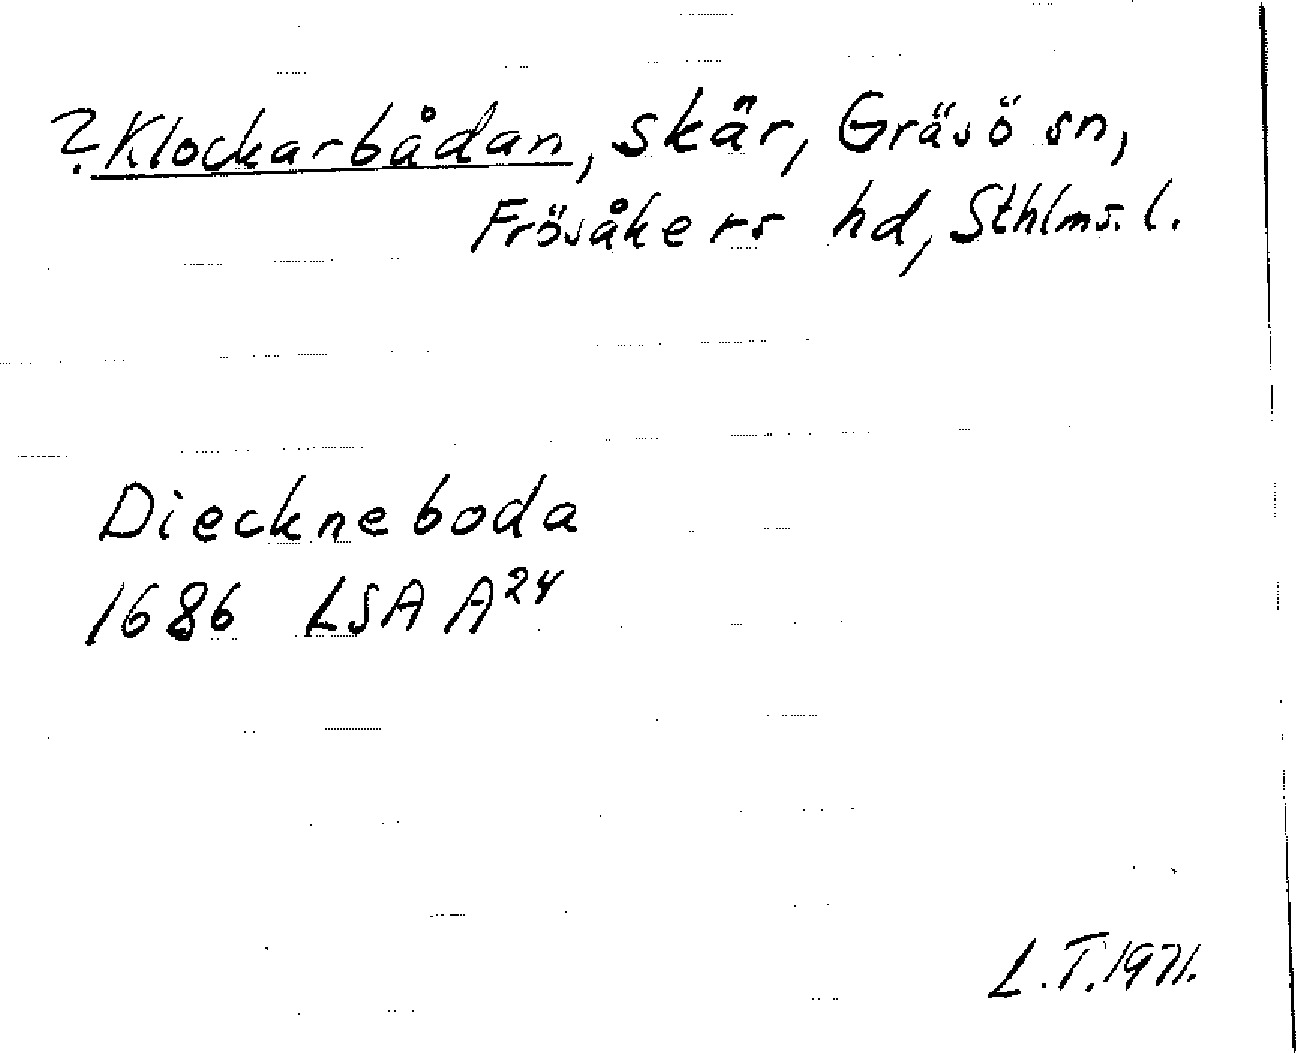 ?Klockarbådan, skär, Gräsö sn,
Frösåkers hd, Sthlms. l.
Dieckneboda
1686 LSA A²⁴
L.T. 1971.